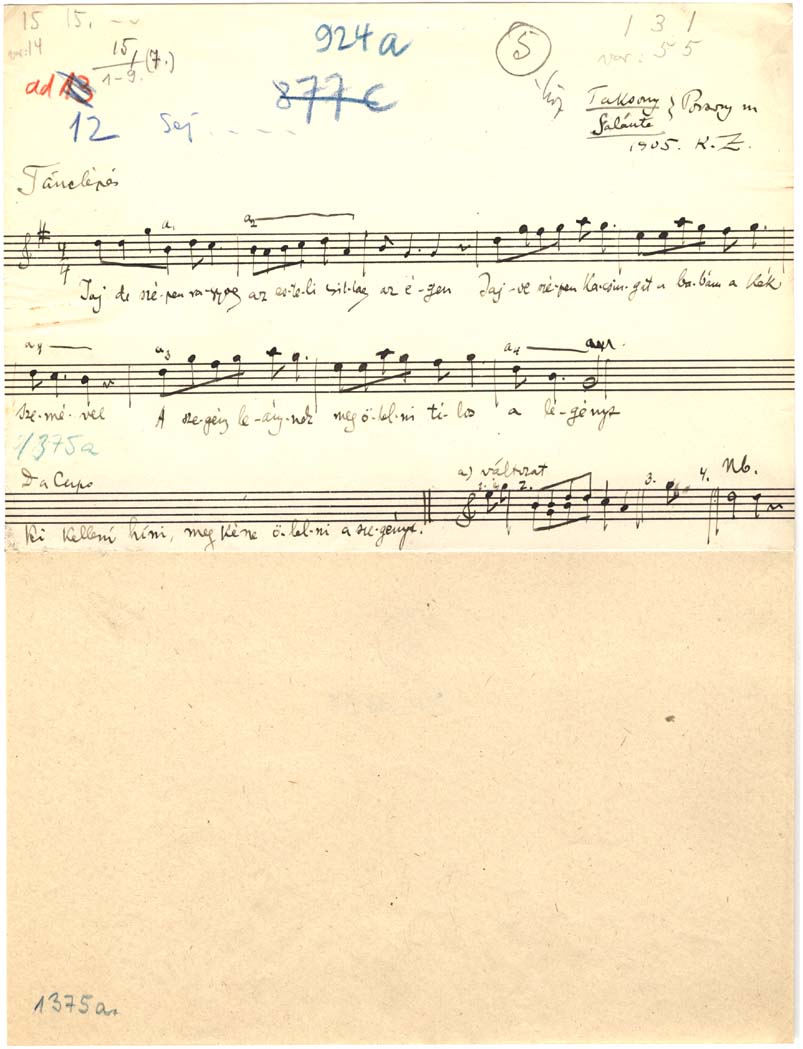 15 15. 924a 5 1 3 1
var: 14 15/1-9. (7.) var: 55
ad 13 877c Taksony } Pozsony m
12 Sej.... Galánta
1905. K. Z.
Tánclépés
a1 a2
4/4
Jaj de szé-pen ra-gyog az es-te-li csil-lag az é-gen Jaj-de szé-pen Ka-csin-git a ba-bám a kék
a4 a3 a4
sze-mé-vel A sze-gény le-ány-nak meg ö-lel-ni ti-los a le-gényt
1375a
Da Capo a) változat 1. 2. 3. 4. Nb.
Ki kelleni híni, meg kéne ö-lel-ni a sze-gényt.
1375a.